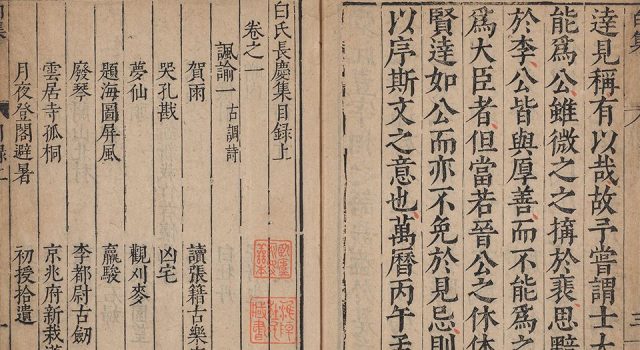 達見稱有以哉故予嘗謂士大
能爲公雖微之之搆於裴思黯
於李公皆與厚善而不能爲之
爲大臣者但當若晉公之休休
賢達如公而亦不免於見忌則
以序斯文之意也萬曆丙午
白氏長慶集目録上
卷之一
諷諭一 古調詩
賀雨 讀張籍古樂
哭孔戡 凶宅
夢仙 觀刈麥
題海圖屏風 羸駿
廢琴 李都尉古劒
雲居寺孤桐 京兆府新栽
月夜登閣避暑 初授拾遺